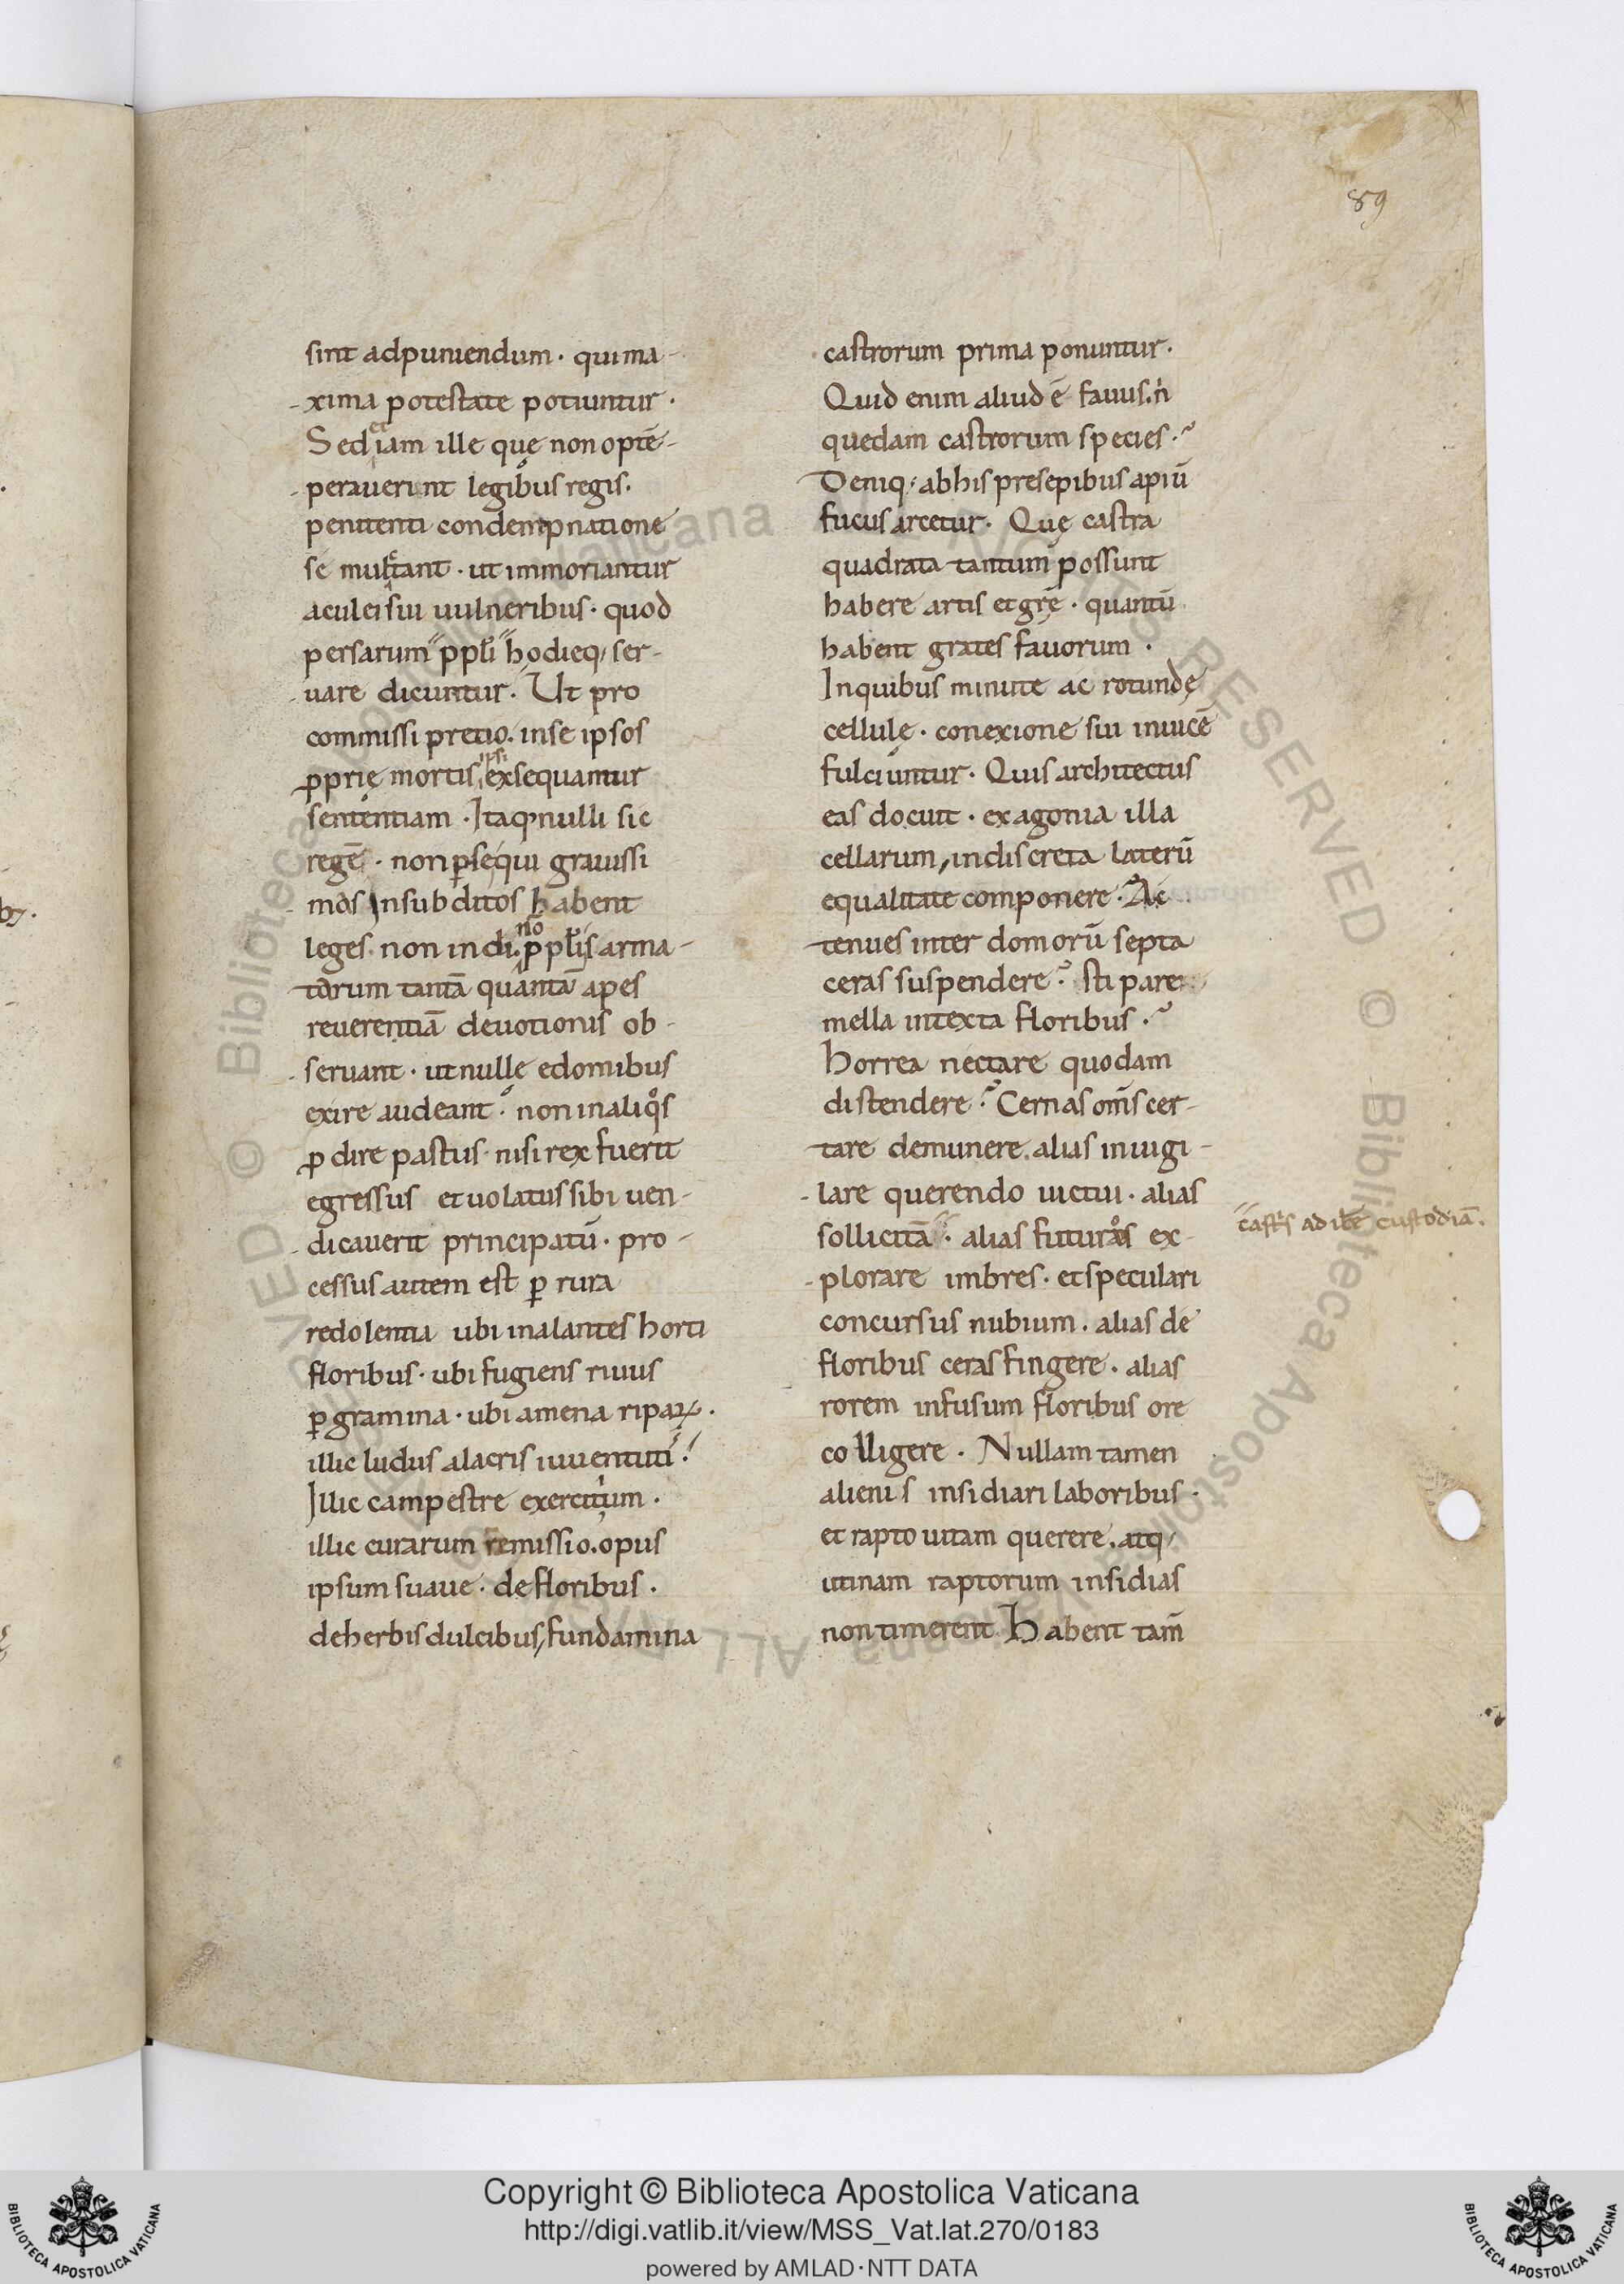 89
sint adpuniendum · qui ma-
xima potestate potiuntur ·
Sed et iam ille quę non optē-
peraverunt legibus regis.
penitenti condempnatione
se multant · ut immoriantur
aculei sui vulneribus · quod
persarum ppłi hodieq; ser-
vare dicuntur. Ut pro
commissi pretio. inse ipsos
ꝓprię mortis ipsi exsequantur
sententiam · Itaq nulli sic
regē · non ꝑse qui gravissi
mos insubditos habent
leges. non indi. no ppłis arma-
torum tantā quantā apes
reverentiā devotionis ob-
servant · ut nulle edomibus
exire audeant · non in aliqos
ꝓdire pastus · nisi rex fuerit
egressus et volatus sibi ven-
dicaverit principatū · pro-
cessus autem est ꝑ rura
redolentia ubi inalantes horti
floribus · ubi fugiens rivus
ꝑ gramina · ubi amena ripaꝝ.
illic ludus alacris iuventuti.
Illic campestre exercitium ·
illic curarum remissio. opus
ipsum suave · de floribus ·
de herbis dulcibus, fundamina
castrorum prima ponuntur.
Quid enim aliud ē favus. ñ
quedam castrorum species.
Deniq; abhis presepibus apiū
fucus arcetur. Quę castra
quadrata tantum possunt
habere artis et grę̄ · quantū
habent grates favorum ·
Inquibus minute ac rotundę
cellulę · conexione sui invicē
fulciuntur. Quis architectus
eas docuit · exagonia illa
cellarum, indiscreta laterū
equalitate componere. Ac
tenues inter domorū septa
ceras suspendere. stipare
mella intexta floribus.
Horrea nectare quodam
distendere. Cernas om̄s cer-
tare demunere. alias invigi-
lare querendo victui · alias
sollicitā · alias futuros ex-
castris adibe custodiā.
plorare imbres · et speculari
concursus nubium. alias de
floribus ceras fingere. alias
rorem infusum floribus ore
colligere. Nullam tamen
alienis insidiari laboribus.
et rapto vitam querere. atq;
utinam raptorum insidias
non timerent. Habent tam̄
Copyright © Biblioteca Apostolica Vaticana
http://digi.vatlib.it/view/MSS_Vat.lat.270/0183
powered by AMLAD·NTT DATA
BIBLIOTECA APOSTOLICA VATICANA
BIBLIOTECA APOSTOLICA VATICANA